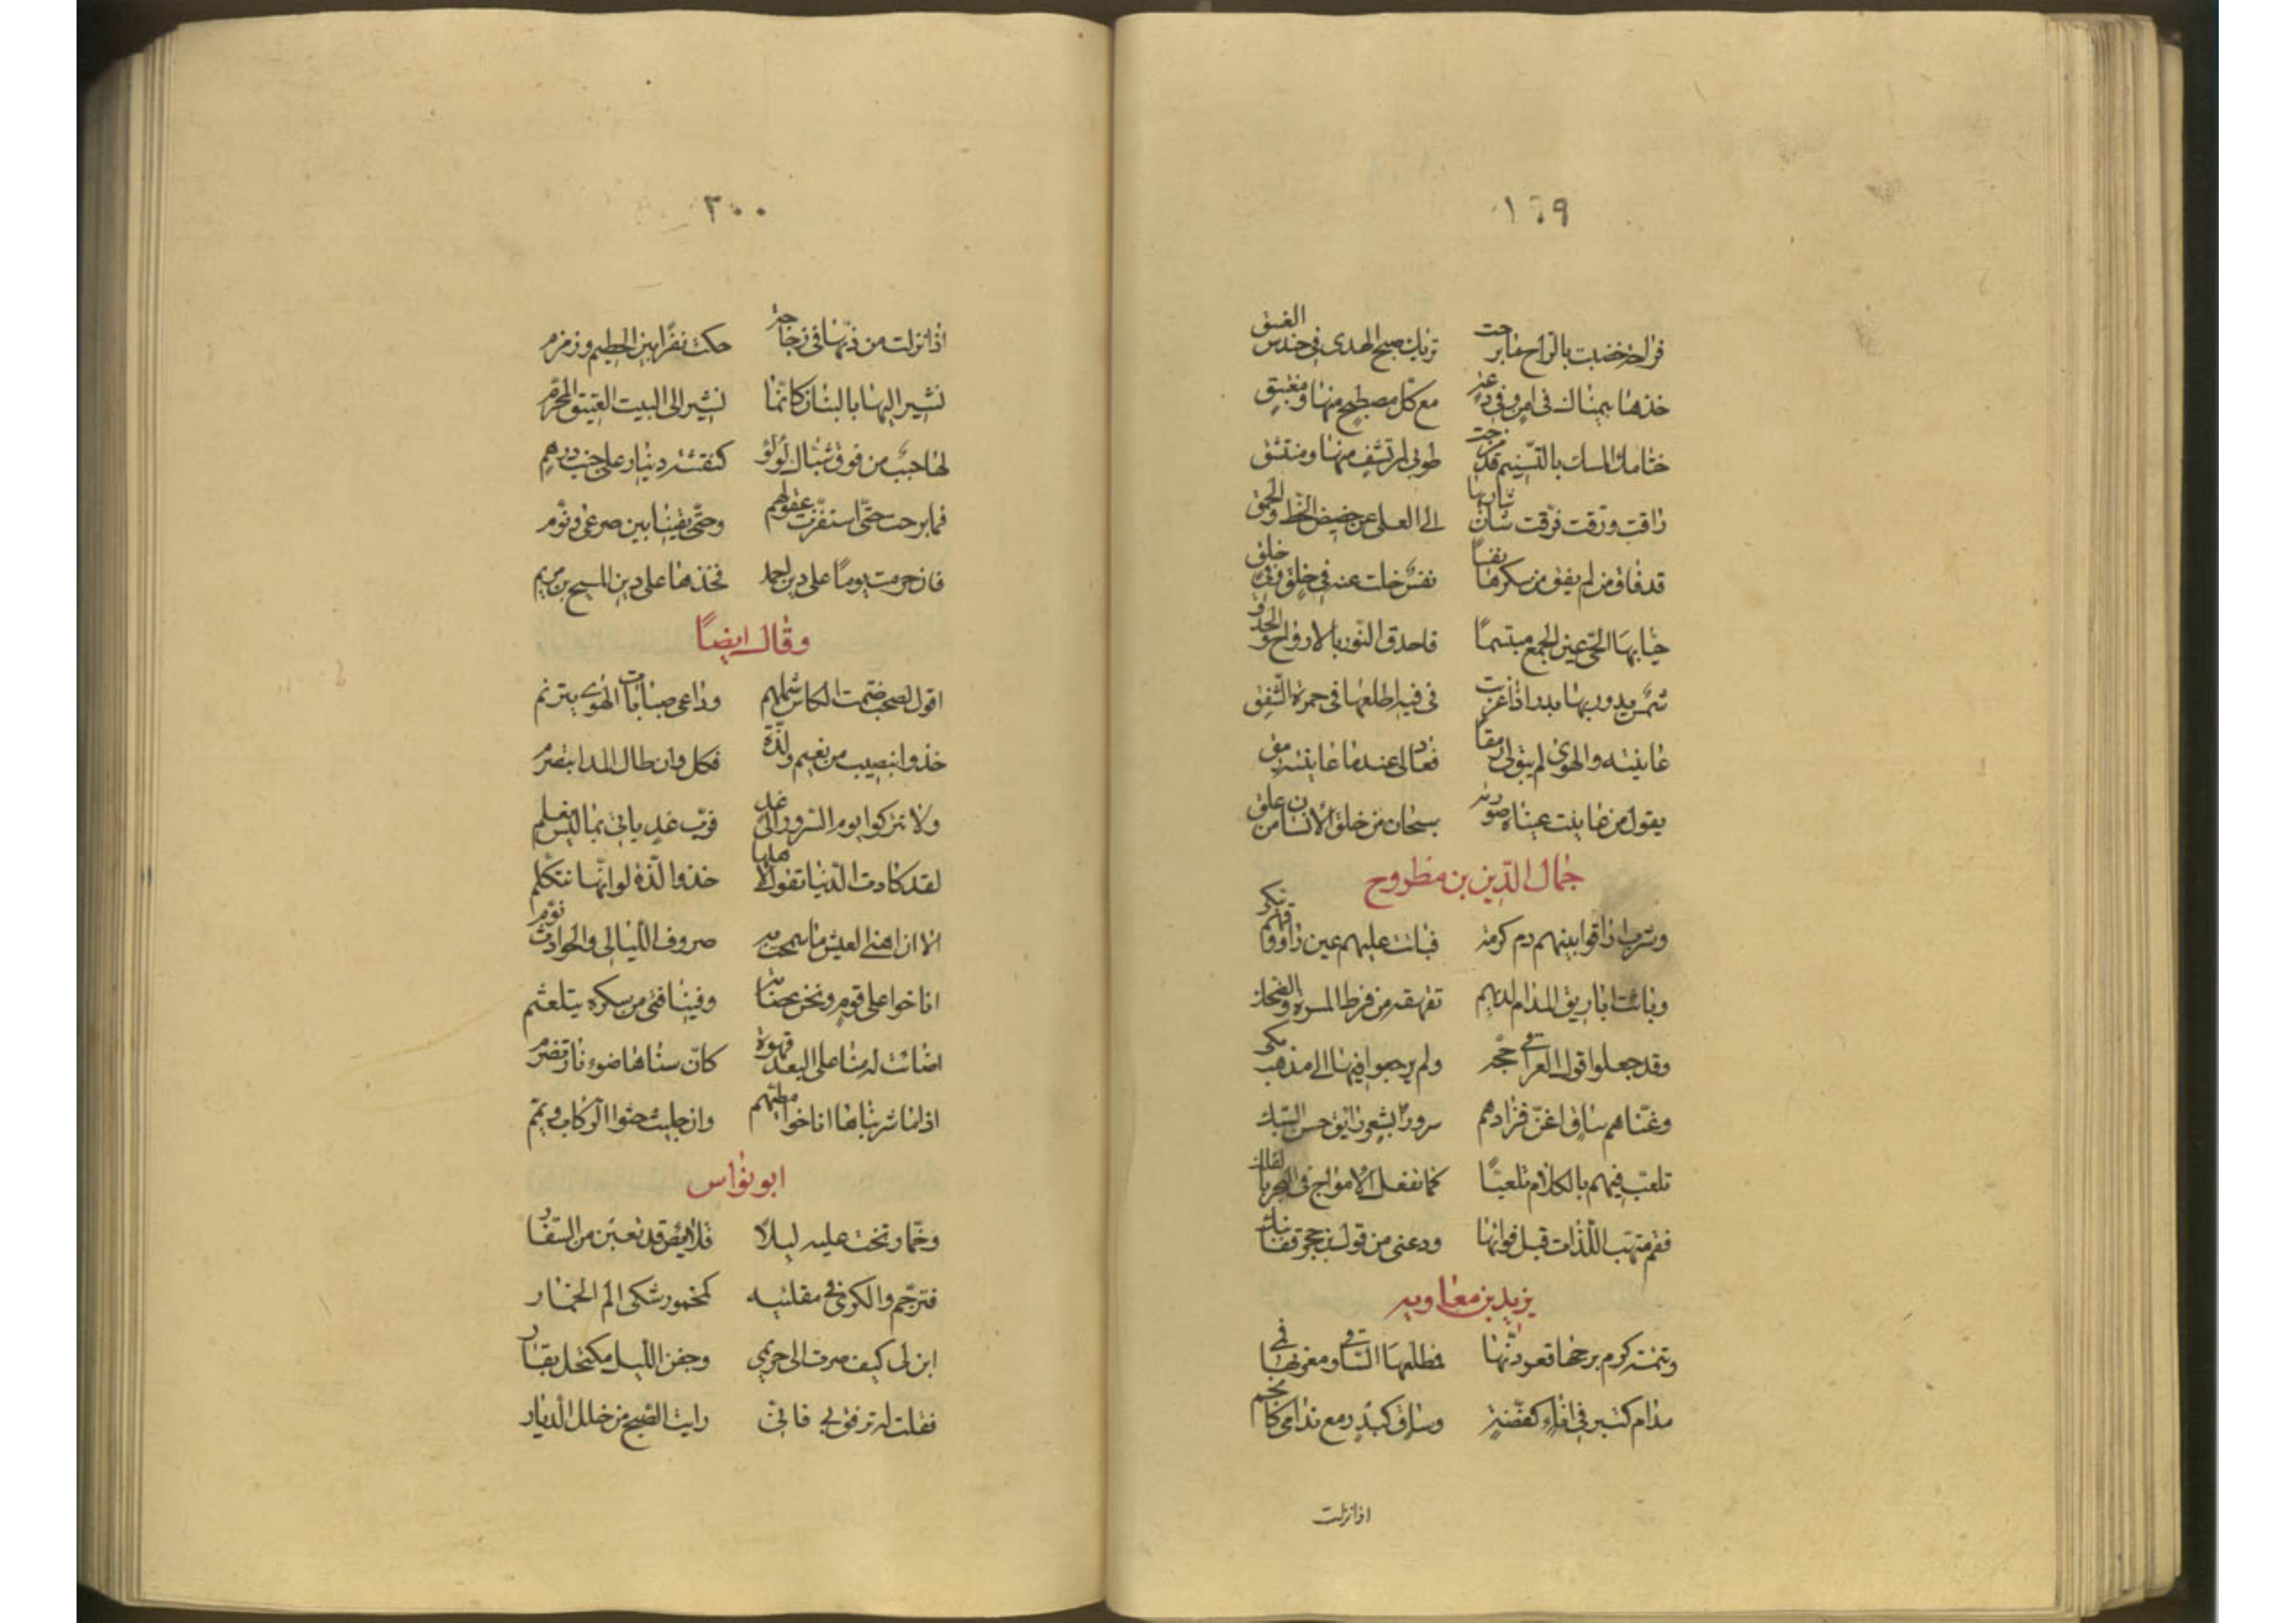 ١٩٩
فراحة خضبت بالراح مذ برحت تريك صبح الهدى في حندس الغسق
خذها بيمناك في امن وفي دعة مع كل مصطبح منها ومغتبق
ختامك المسك بالتسنيم قد مزجت طوبى لمرتشف منها ومنتشق
راقت ورقت فرقت شان شاربها الى العلى عن حضيض الحظ والحمق
قد فاق من لم يفق من سكرها نفسا نفس خلت عنه في خلق وفي خلق
حيا بها الحي عين الجمع مبتسما فاحدق النور بالارواح والحدق
شمس يدور بها بدر اذا غربت في فيه اطلعها في حمرة الشفق
عاينته والهوى لم يبق لي رمقا فعاد لي عندما عاينته رمقي
يقول من عاينت عيناه صورته سبحان من خلق الانسان من علق
جمال الدين بن مطروح
وشرب اراقوا بينهم دم كرمة فباتت عليهم عين راووقهم تبكي
وباتت اباريق المدام لديهم تقهقه من فرط المسرة والضحك
وقد جعلوا قول العراقي حجة ولم يرجعوا فيها الى مذهب مكي
وغناهم ساق اغن فزادهم سرورا بشعر رايق حسن السبك
تلعب فيهم بالكلام تلعبا كما تفعل الامواج في البحر بالفلك
فقم نتهب اللذات قبل فواتها ودعني من قول بن حجر قفا نبك
يزيد بن معاوية
وشمسة كرم برجها قعر دنها فمطلعها الساقي ومغربها في
مدام كتبر في اناء كفضة وساق كبدر مع ندامى كانجم
اذا نزلت
٢٠٠
اذا نزلت من دنها في زجاجة حكت نفرا بين الحطيم وزمزم
نشير اليها بالبنان كانما نشير الى البيت العتيق المحرم
لها حبب من فوق شباك لولؤ كنقشة دينار على جنب درهم
فما برحت حتى استفزت عقولهم وحتى بقينا بين صرعى ونوم
فان حرمت يوما على دين احمد فخذها على دين المسيح بن مريم
وقال ايضا
اقول لصحب ضمت الكاس شملهم وداعي صبابات الهوى يترنم
خذوا بنصيب من نعيم ولذة فكل وان طال المدا يتصرم
ولا تتركوا يوم السرور الى غد فرب غد ياتي بما ليس تعلم
لقد كادت الدنيا تقول لاهلها خذوا لذة لو انها تتكلم
الا ان اهنى العيش ما سمحت به صروف الليالي والحوادث نوم
اناخوا على قوم ونحن عصابة وفينا فتى من سكره يتلعثم
اضائت له منا على البعد قهوة كان سناها ضوء نار تضرم
اذا ما شربناها اناخوا مطيهم وان جليت حثوا الركاب ويمموا
ابو نواس
وخمار نخت عليه ليلا قلايص قد تعبن من السفار
فترجم والكرى في مقلتيه كمخمور شكى الم الخمار
ابن لي كيف صرت الى حريمي وجفن الليل مكتحل بقار
فقلت له ترفق بي فاني رايت الصبح من خلل الديار